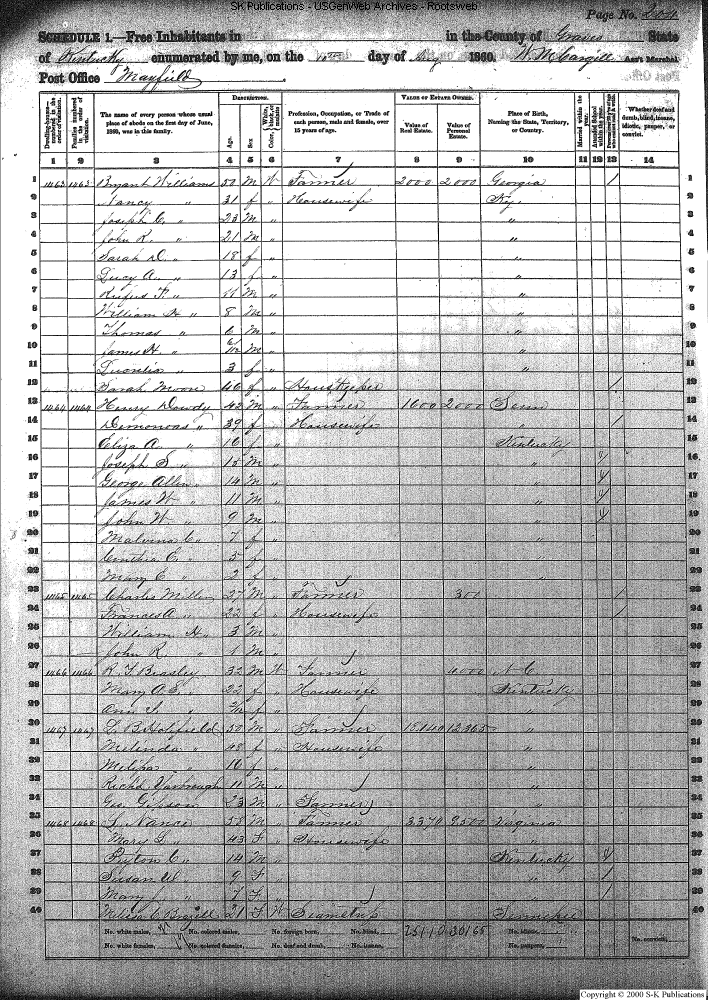 S-K Publications - USGenWeb Archives - Rootsweb
Page No. 204
SCHEDULE 1.—Free Inhabitants in in the County of Graves State
of Kentucky enumerated by me, on the 10th day of Aug 1860. W. M. Cargill Ass't Marshal
Post Office Mayfield
Dwelling-houses—numbered in the order of visitation.
Families numbered in the order of visitation.
The name of every person whose usual place of abode on the first day of June, 1860, was in this family.
Description.
Age.
Sex
Color, White, black, or mulatto
Profession, Occupation, or Trade of each person, male and female, over 15 years of age.
Value of Estate Owned.
Value of Real Estate.
Value of Personal Estate.
Place of Birth, Naming the State, Territory, or Country.
Married within the year.
Attended School within the year.
Whether deaf and dumb, blind, insane, idiotic, pauper, or convict.
1 2 3 4 5 6 7 8 9 10 11 12 13 14
1 1463 1463 Bryant Williams 50 M W Farmer 2000 2000 Georgia / 1
2 Nancy " 31 f " Housewife Ky. 2
3 Joseph C. " 23 M " " 3
4 John R. " 21 M " " 4
5 Sarah D. " 18 f " " 5
6 Lucy A. " 13 f " " 6
7 Rufus F. " 11 M " " 7
8 William " 8 M " " 8
9 Thomas " 6 M " " 9
10 James H. " M " " 10
11 " 3 f " " 11
12 Sarah Moon 46 f " Housekeeper " / 12
13 1464 1464 Henry Dowdy 42 M " Farmer 1600 2000 Tenn 13
14 " 39 f " Housewife " / 14
15 Eliza A. " 16 f " Kentucky 15
16 Joseph S. " 15 M " " 16
17 George Allen " 14 M " " 17
18 James W " 11 M " " 18
19 John W " 9 M " " 19
20 Malvina C. " 7 f " " 20
21 Cinthia E. " 5 f " " 21
22 Mary E. " 2 f " " 22
23 1465 1465 Charles Miller 27 M " Farmer 300 " / 23
24 Frances A. " 22 f " Housewife " / 24
25 William H. " 3 M " " 25
26 John R. " 1 M " " 26
27 1466 1466 R. T. Beasley 32 M W Farmer 4000 N C 27
28 Mary A. E. " 22 f " Housewife Kentucky 28
29 " f " " 29
30 1467 1467 L. B. Holifield 50 M " Farmer 15,140 12365 " 30
31 Melinda " 48 f " Housewife " 31
32 " 16 f " " 32
33 Richd. Yarbrough 11 M " " 33
34 Geo. Gibson 23 M " Farmer " 34
35 1468 1468 Nance 58 M " Farmer 3370 9500 Virginia 35
36 Mary L. " 43 F " Housewife " 36
37 C. " 14 M " Kentucky 37
38 Susan W. " 9 F " " / 38
39 Mary " 7 F " " / 39
40 21 F W Tennessee 40
No. white males, No. colored males, No. foreign born, No. blind, 25110 30165 No. idiotic,
No. white females, No. colored females, No. deaf and dumb, No. insane, No. paupers, No. convicts,
Copyright © 2000 S-K Publications